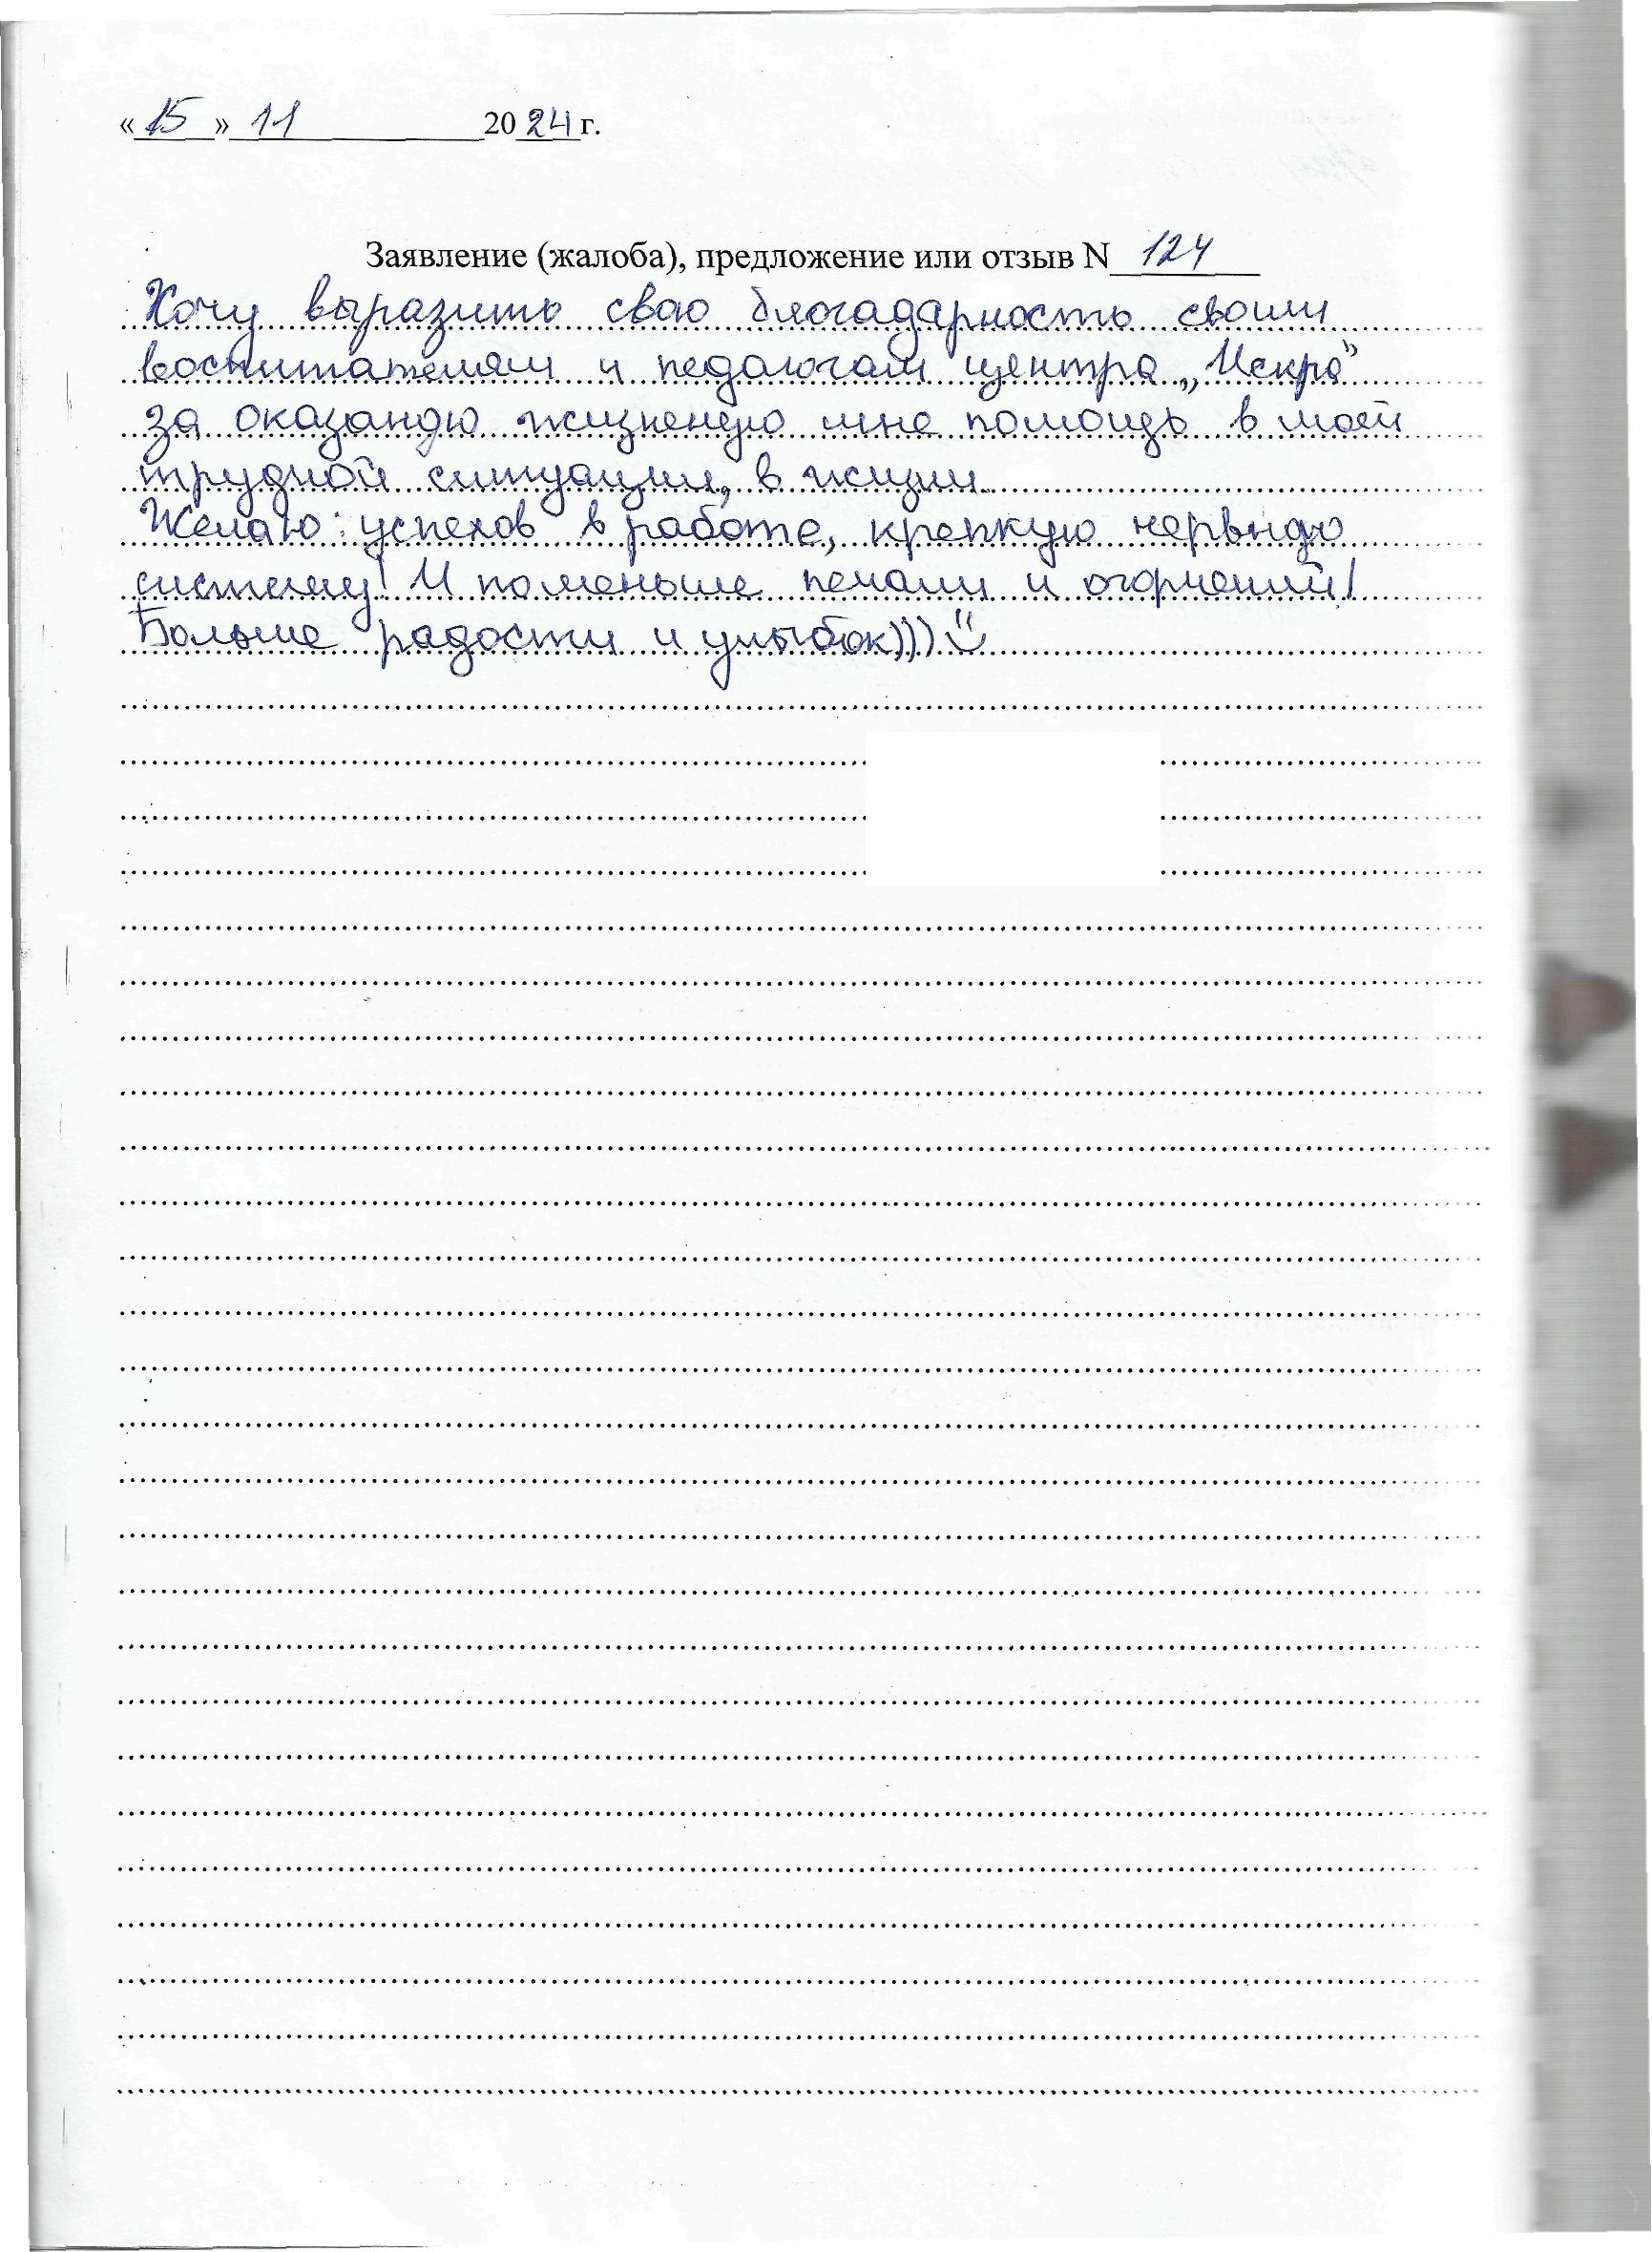 «15» 11 2024 г.
Заявление (жалоба), предложение или отзыв N 124
Хочу выразить сваю благадарность своим
воспитателям и педагогам центра „Искра”
за оказаную жизненую мне помощь в моей
трудной ситуации, в жизни.
Желаю: успехов в работе, крепкую нервную
систему! И поменьше печали и огорчений!
Больше радости и улыбок))) ツ